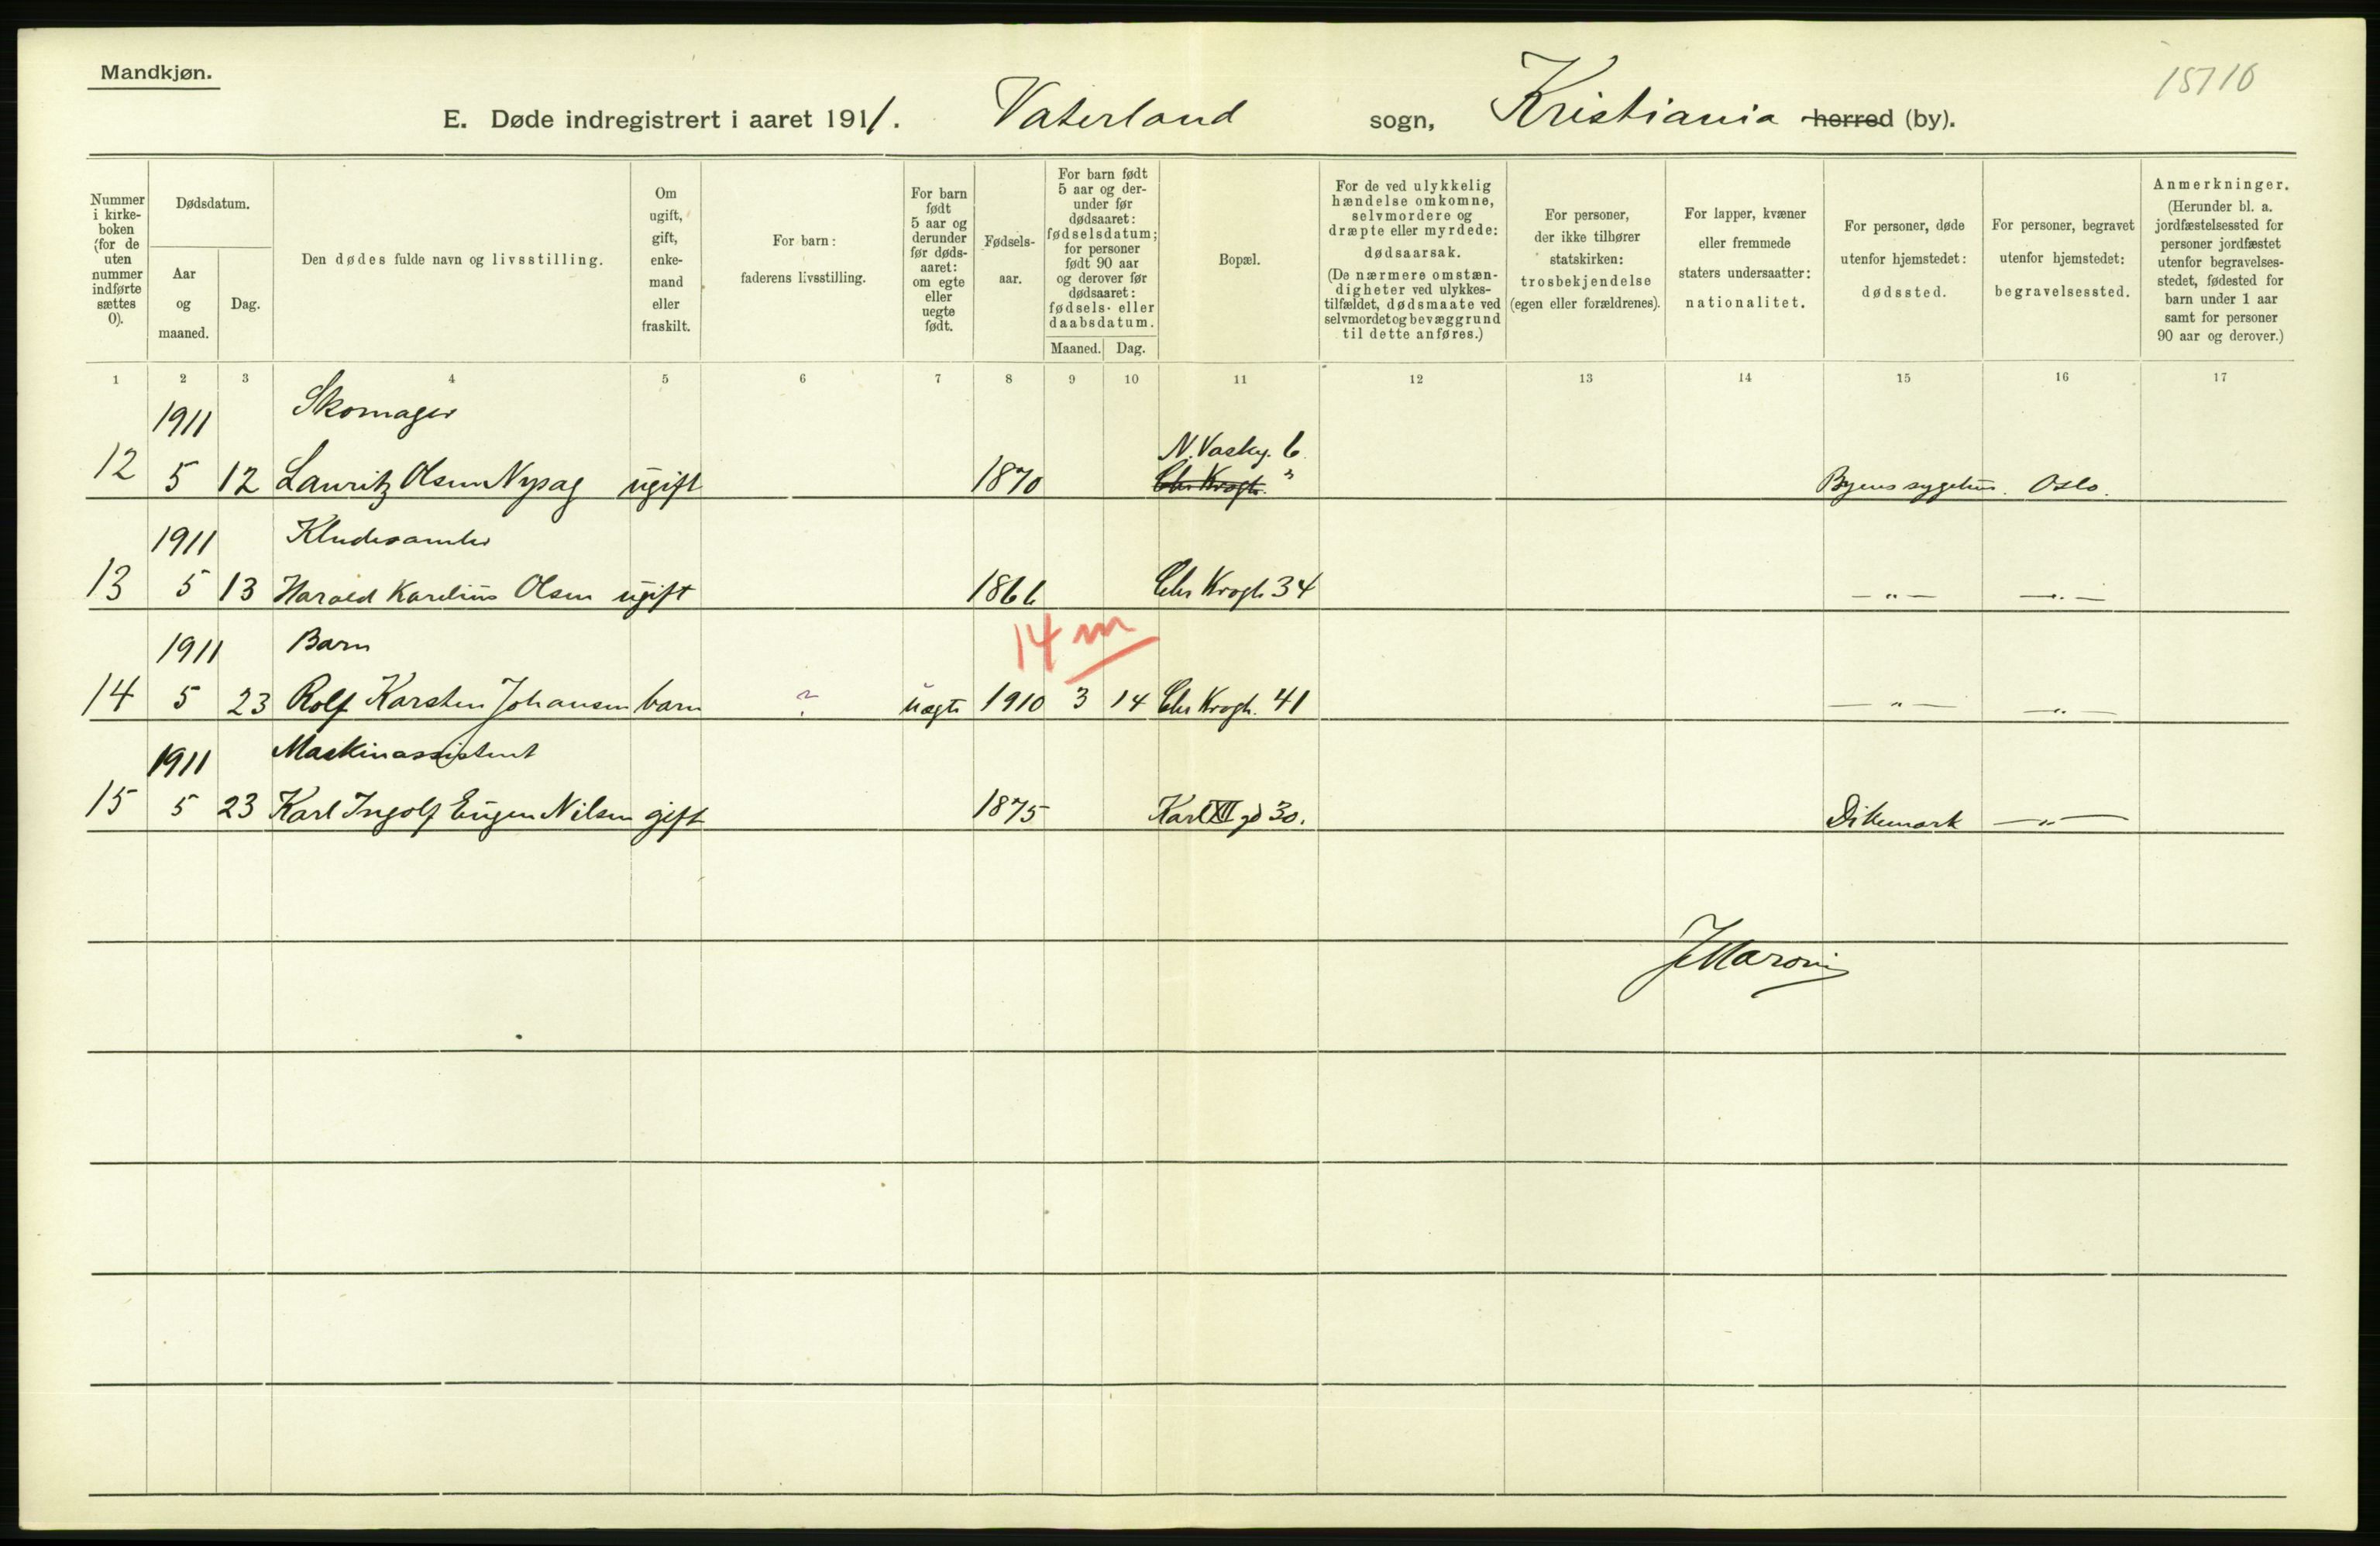 Mandkjøn.
15710
E. Døde indregistrert i aaret 1911. Vaterland sogn, Kristiania herred (by).
Nummer i kirke- boken (for de uten nummer indførte sættes 0).
Dødsdatum.
Aar og maaned.
Dag.
Den dødes fulde navn og livsstilling.
Om ugift, gift, enke- mand eller fraskilt.
For barn: faderens livsstilling.
For barn født 5 aar og derunder før døds- aaret: om egte eller uegte født.
Fødsels- aar.
For barn født 5 aar og der- under før dødsaaret: fødselsdatum; for personer født 90 aar og derover før dødsaaret: fødsels- eller daabsdatum.
Maaned. Dag.
Bopæl.
For de ved ulykkelig hændelse omkomne, selvmordere og dræpte eller myrdede: dødsaarsak. (De nærmere omstæn- digheter ved ulykkes- tilfældet, dødsmaate ved selvmordet og bevæggrund til dette anføres.)
For personer, der ikke tilhører statskirken: trosbekjendelse (egen eller forældrenes).
For lapper, kvæner eller fremmede staters undersaatter: nationalitet.
For personer, døde utenfor hjemstedet: dødssted.
For personer, begravet utenfor hjemstedet: begravelsessted.
Anmerkninger. (Herunder bl. a. jordfæstelsessted for personer jordfæstet utenfor begravelses- stedet, fødested for barn under 1 aar samt for personer 90 aar og derover.)
1 2 3 4 5 6 7 8 9 10 11 12 13 14 15 16 17
1911 Skomager
N. Vaskg. 6
12 5 12 Lauritz Olsen Nypag ugift 1870 Chr Krogh. " Byens sygehus. Oslo.
1911 Kludesamler
13 5 13 Harald Karelius Olsen ugift 1866 Chr Krogh 34 — " — — " —
14 m
1911 Barn
14 5 23 Rolf Karsten Johansen barn ? uegte 1910 3 14 Chr Krogh. 41 — " — — " —
1911 Maskinassistent
15 5 23 Karl Ingolf Eugen Nilsen gift 1875 Karl XII gd 30. Dikemark — " —
J Maroni